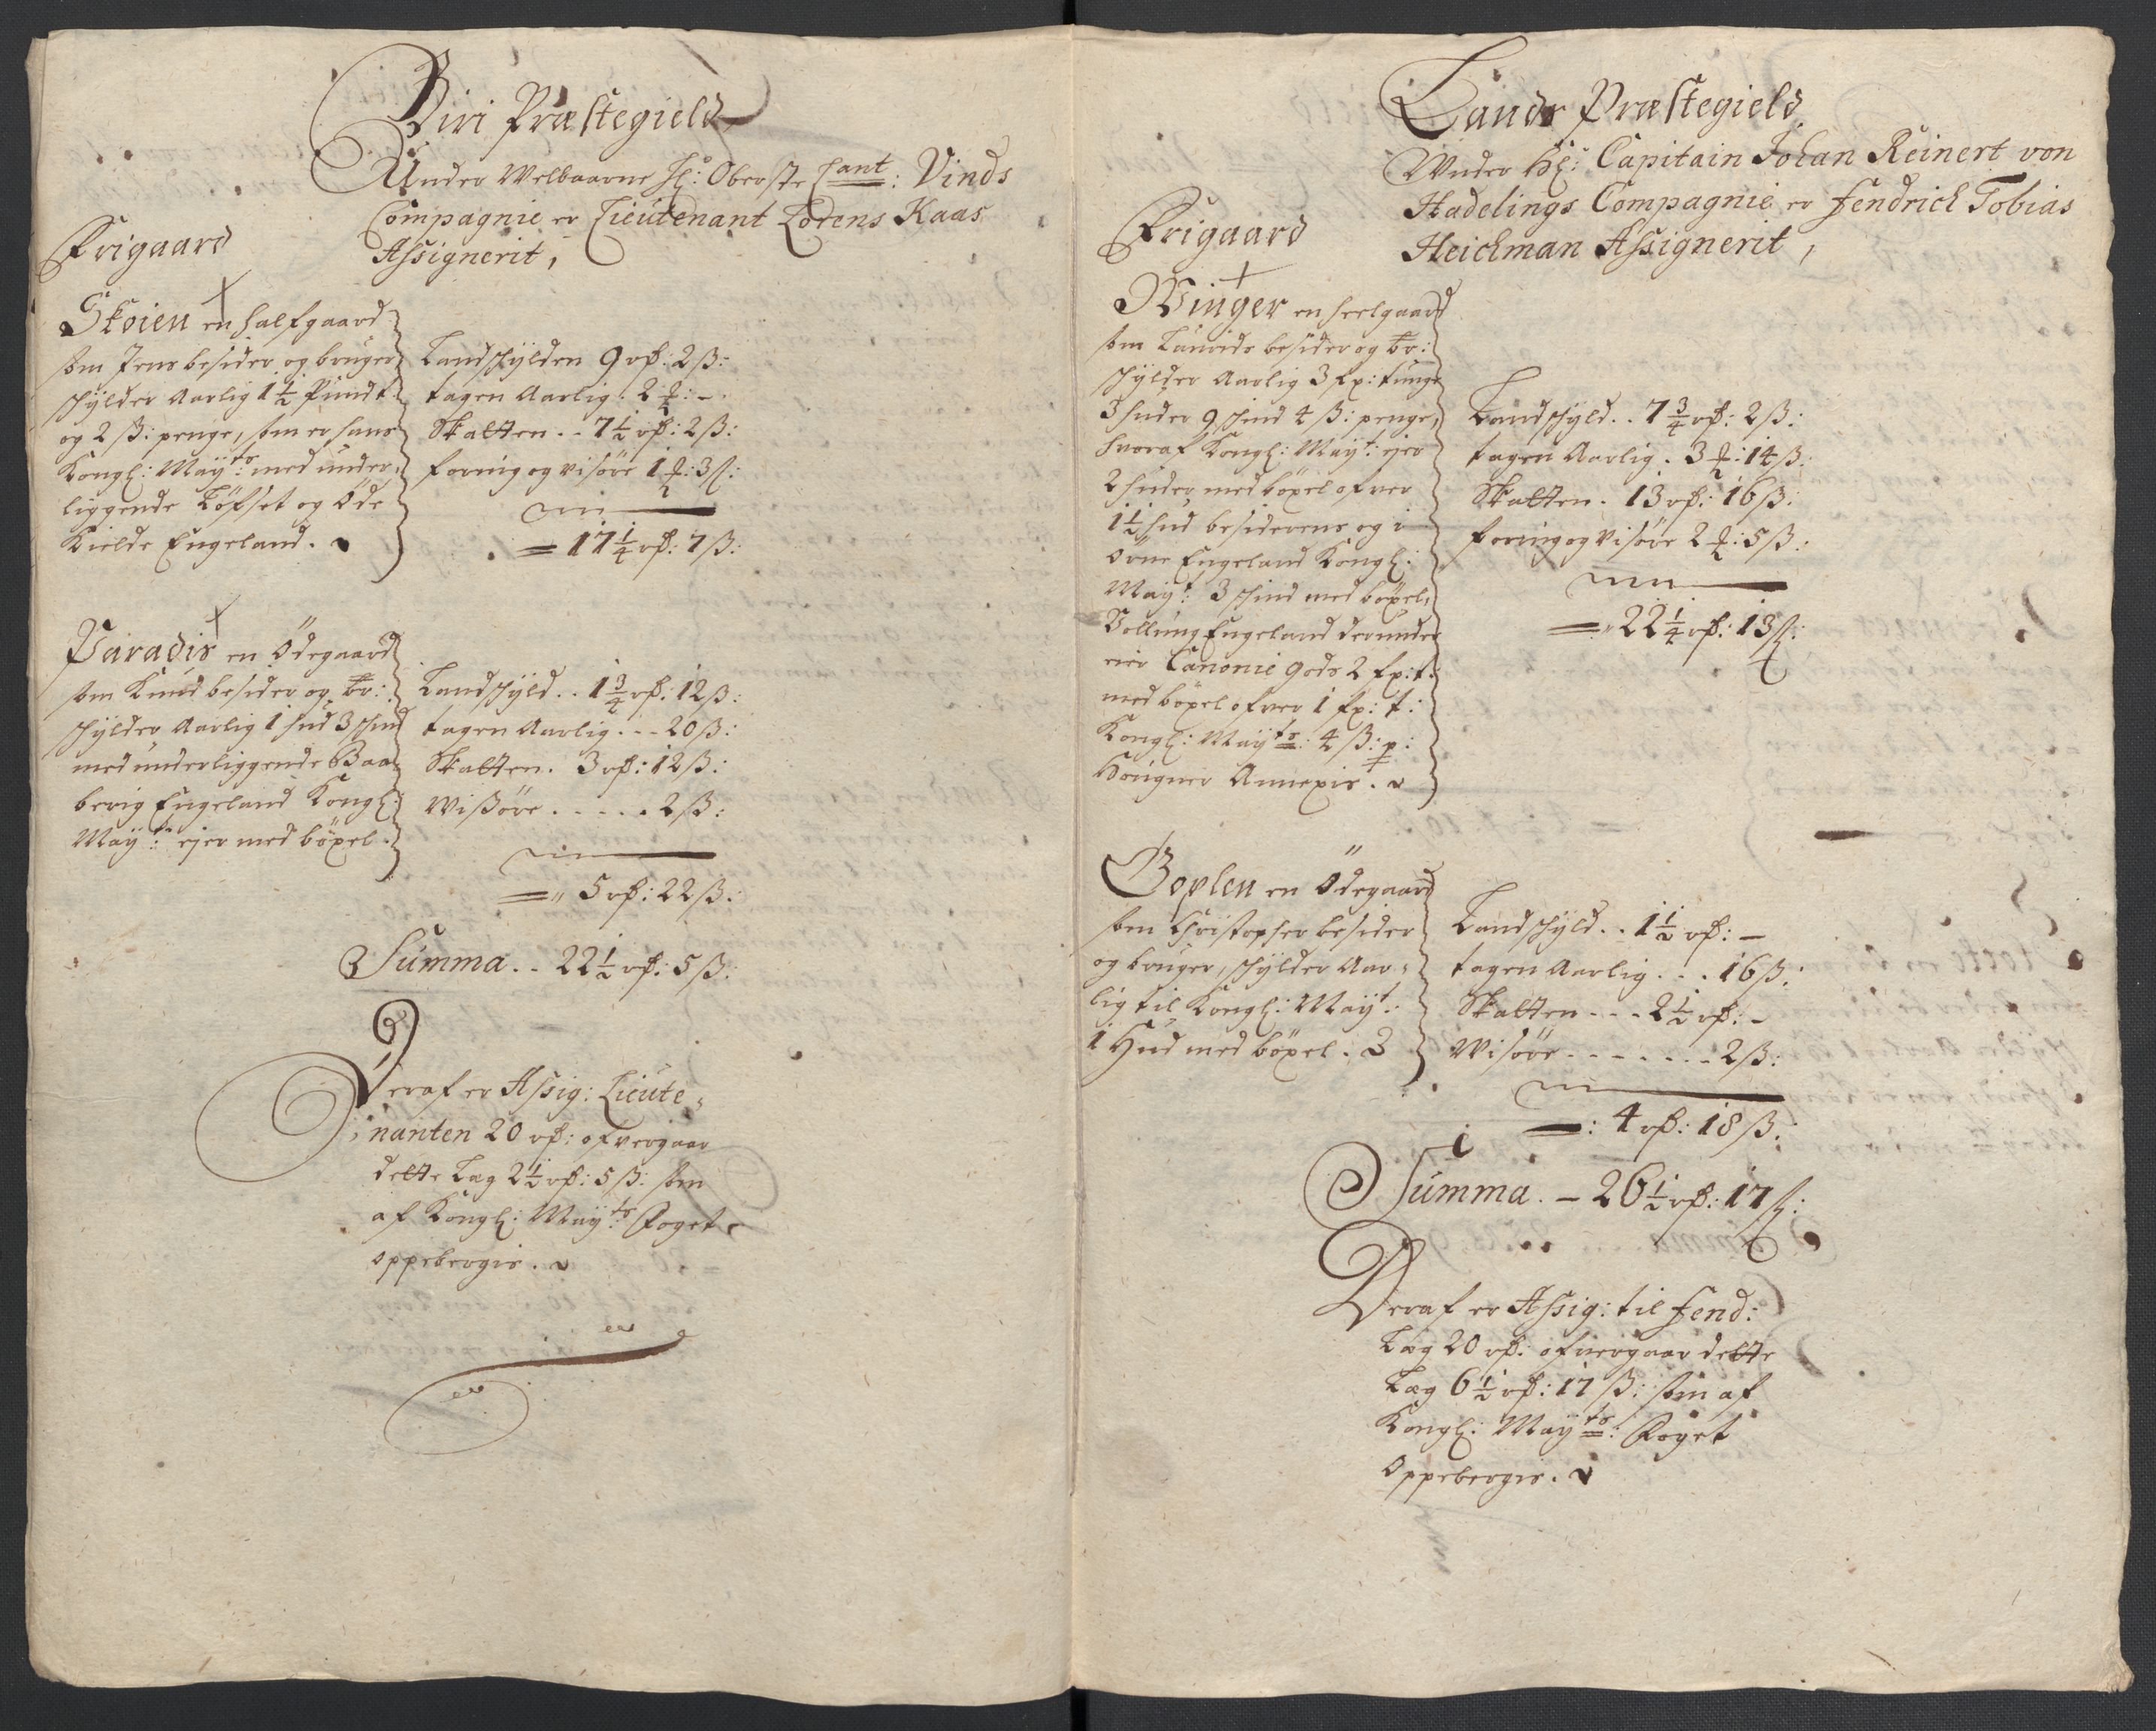 Biri Præstegield
Under Welbaarne Hr: Oberste Lieut: Vinds
Compagnie er Lieutenant Lorens Kaas
Assignerit,
Frigaard
Skøien en halfgaard
som Jens besider og bruger
schÿlder Aarlig 1½ Pundt
og 2 ß: penge, som er hans
Kongl: Maÿts: med under,
liggende Løfset og Øde
Kielde Engeland.
Landschÿlden 9 rd: 2 ß:
tagen Aarlig. 2 ort: -
Skatten - - 7½ rd: 2 ß:
foring og visøre 1 ort: 3 ß:
= 17¼ rd: 7 ß:
Paradis en Ødegaard
som Knud besider og br:
schÿlder Aarlig 1 hud 3 schind
med underliggende Baa,
berig Engeland Kongl:
Maÿt: ejer med böxel.
Landschÿld. . 1¾ rd: 12 ß:
tagen Aarlig. - - 20 ß:
Skatten. 3 rd: 12 ß:
Wissøre . . . . . 2 ß:
= 5 rd: 22 ß:
Summa. - 22½ rd: 5 ß:
Deraf er Assig: Lieute,
nanten 20 rd: ofvergaar
dette Læg 2½ rd: 5 ß: som
af Kongl: Maÿts: Foget
oppebergis.
Lands Præstegield
Under Hr: Capitain Johan Reinert von
Hadelings Compagnie er Fendrich Tobias
Heichman Assignerit,
Frigaard
Winger en heelgaard
som Laurids besider og br:
schÿlder Aarlig 3 fx: tunge
3 huder 9 schind 4 ß: penge,
hvoraf Kongl: Maÿt: ejer
2 huder med böxel ofver
1½ hud besiderens og i
Örne Engeland Kongl:
Maÿt: 3 schind med böxel,
Vollung Engeland derunder
eier Canonie gods 2 fx: t:
med böxel ofver 1 fx: t:
Kongl: Maÿts: 4 ß: p:
Hougner Annexis.
Landschÿld. . 7¾ rd: 2 ß:
tagen Aarlig. 3 ort: 14 ß:
Skatten. 13 rd: 16 ß:
foring og visøre 2 ort: 5 ß:
= 22¼ rd: 13 ß:
Goplen en Ødegaard
som Christopher besider
og bruger, schÿlder Aar,
lig til Kongl: Maÿt:
1 Hud med böxel.
Landschÿld. . 1½ rd: -
tagen Aarlig. . . 16 ß:
Skatten - - - 2½ rd: -
Wisøre - - - - - - 2 ß:
=: 4 rd: 18 ß:
Summa. - 26½ rd: 17 ß:
Deraf er Assig: til Fend:
Læg 20 rd: ofvergaar dette
Læg 6½ rd: 17 ß: som af
Kongl: Maÿts: Foget
Oppebergis.